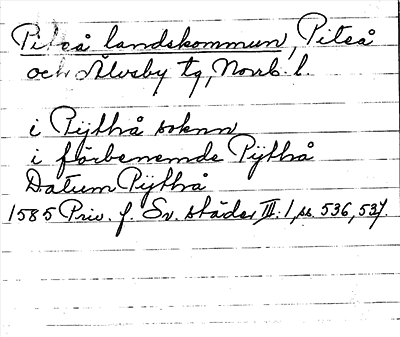 Piteå landskommun, Piteå
och Älvsby tg, Norrb. l.
i Pijtthå soknn
i förbenemde Pijtthå
Datum Pijtthå
1585 Priv. f. Sv. städer III: 1, ss. 536, 537.